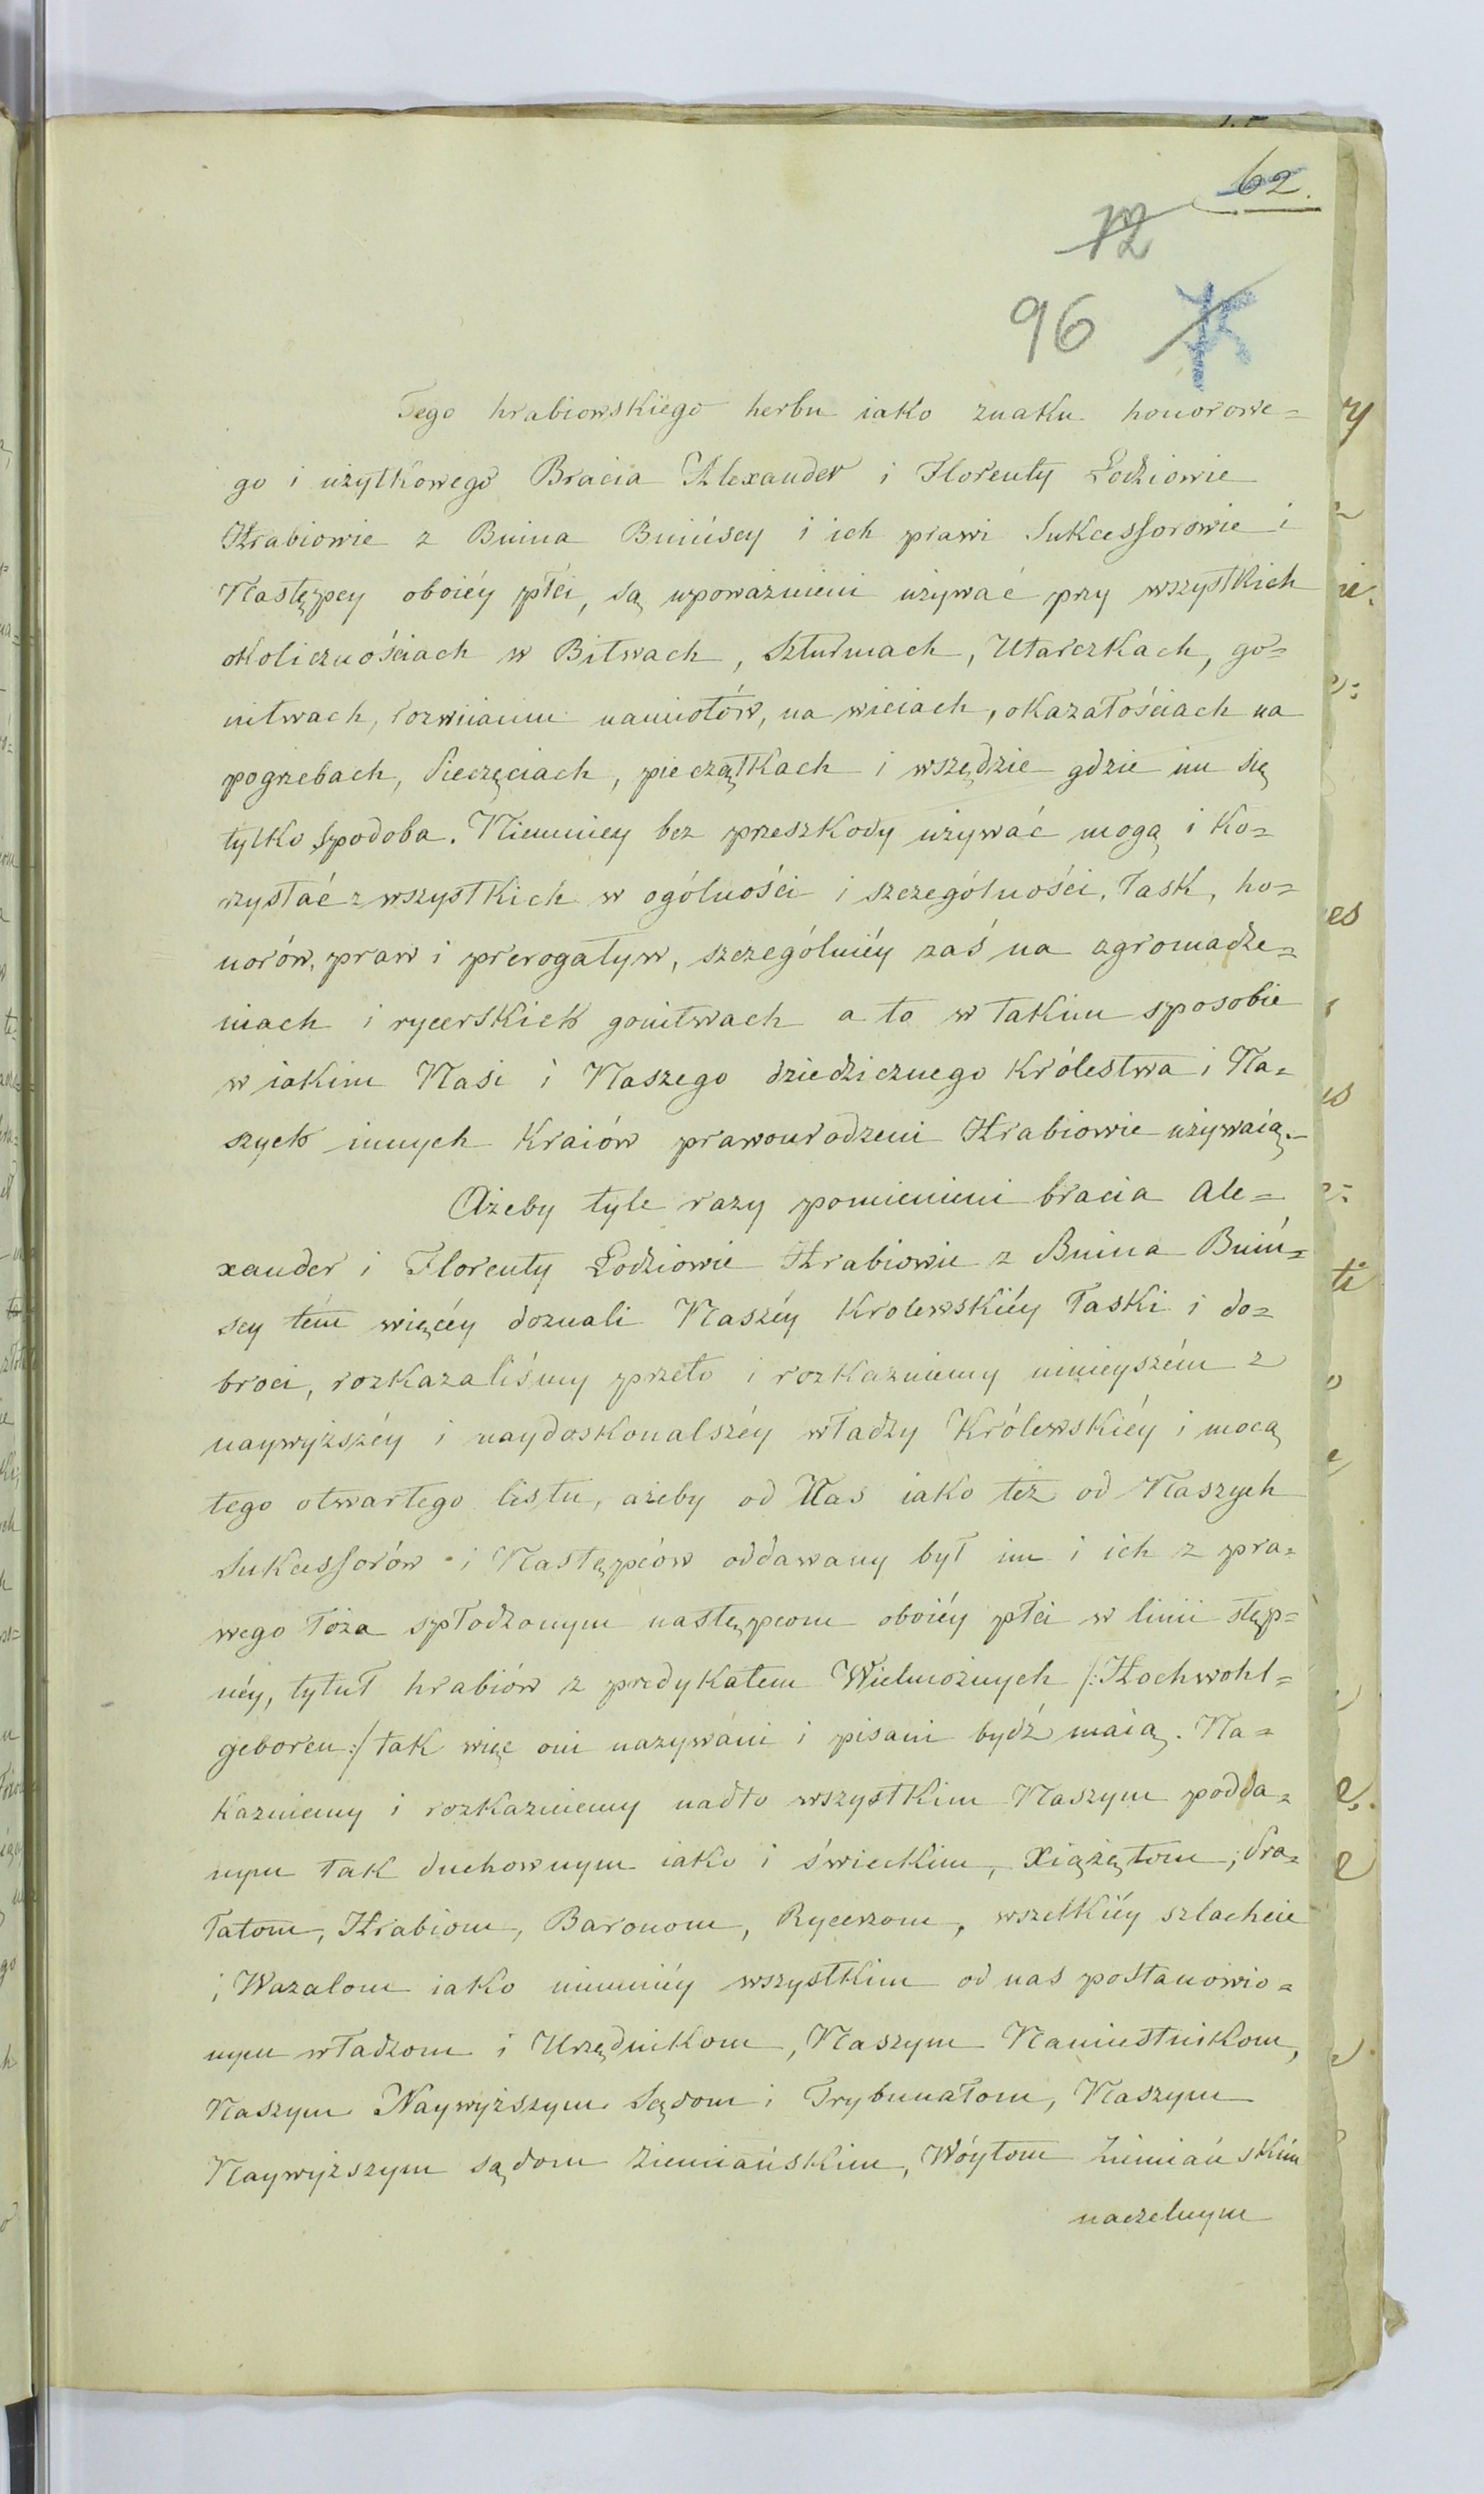 62.
12
96
Tego hrabiowskiego herbu iako znaku honorowe=
go i użytkowego Bracia Alexander i Florenty Łodziowie
Hrabiowie z Bnina Bnińscy i ich prawi Sukcessorowie i
Następcy oboiéy płci, są upoważnieni używać przy wszystkich
okolicznościach w Bitwach, Szturmach, Utarczkach, go=
nitwach, rozwiianiu namiotów, na wiciach, okazałościach na
pogrzebach, Pieczęciach, pieczątkach i wszędzie gdzie im się
tylko spodoba. Niemniey bez przeszkody używać mogą i ko=
rzystać z wszystkich w ogólności i szczególności, łask, ho=
norów, praw i prerogatyw, szczególniéy zaś na zgromadze=
niach i rycerskich gonitwach a to w takim sposobie
w iakim Nasi i Naszego dziedzicznego Królestwa i Na=
szych innych Kraiów prawourodzeni Hrabiowie używaią.—
Ażeby tyle razy pomienieni bracia Ale=
xander i Florenty Łodziowie Hrabiowie z Bnina Bniń=
scy tém więcéy doznali Naszéy Krolewskiéy łaski i do=
broci, rozkazaliśmy przeto i rozkazuiemy ninieyszém z
naywyższéy i naydoskonalszéy władzy Królewskiéy i mocą
tego otwartego listu, ażeby od Nas iako też od Naszych
Sukcessorów i Następców oddawany był im i ich z pra=
wego łoża spłodzonym następcom oboiéy płci w linii stęp=
néy, tytuł hrabiów z predykatem Wielmożnych /: Hochwohl=
geboren :/ tak więc oni nazywani i pisani bydź maią. Na=
kazuiemy i rozkazuiemy nadto wszystkim Naszym podda=
nym tak duchownym iako i świeckim, Xiążętom, Pra=
łatom, Hrabiom, Baronom, Rycerzom, wszelkiéy szlachcie
i Wazalom iako niemniéy wszystkim od nas postanowio=
nym władzom i Urzędnikom, Naszym Namiestnikom,
Naszym Naywyższym Sądom i Trybunałom, Naszym
Naywyższym sądom Ziemiańskim, Wóytom Ziemiańskim
naczelnym